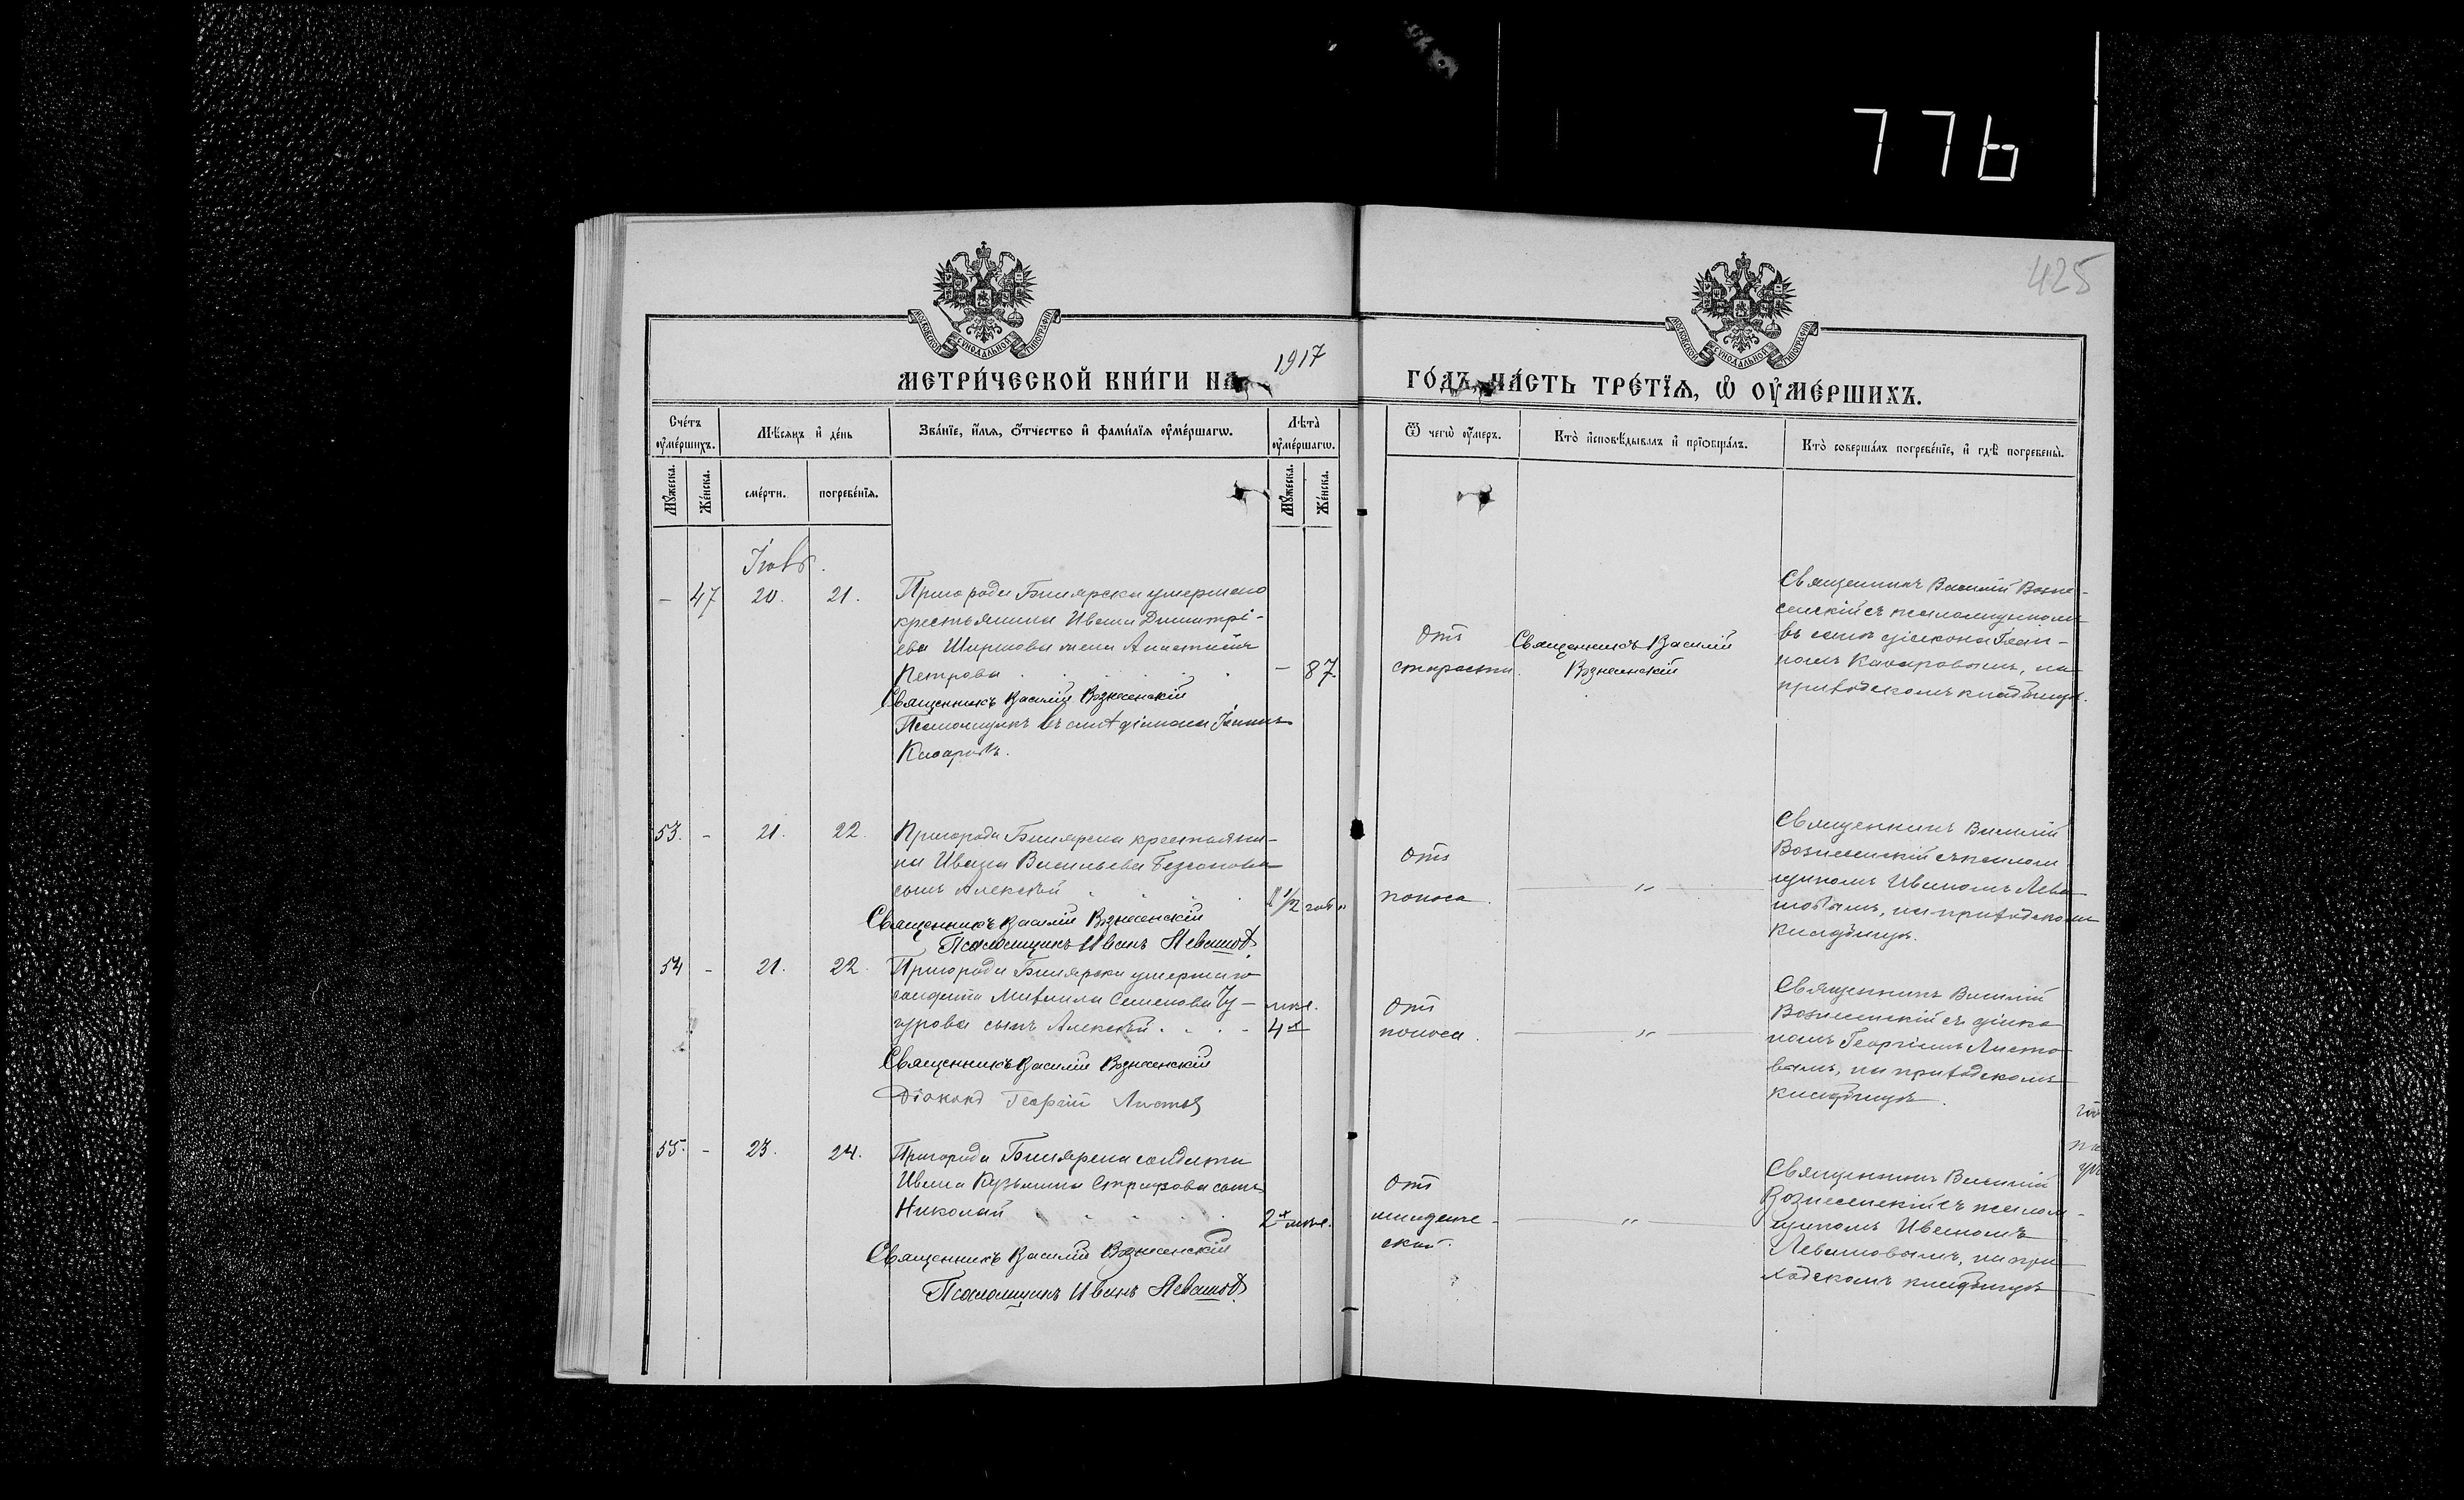 776
425
МОСКОВСКОЙ СУНОДАЛЬНОЙ ТИПОГРАФІИ
МОСКОВСКОЙ СУНОДАЛЬНОЙ ТИПОГРАФІИ
МЕТРИ́ЧЕСКОЙ КНИ́ГИ НА 1917 ГО́ДЪ, ЧА́СТЬ ТРЕ́ТЇѦ, Ѡ҆ ОУ҆МЕ́РШИХЪ.
Сче́тъ оу҆ме́ршихъ.
Мѣ́сѧцъ и҆ де́нь
Зва́нїе, и҆́мѧ, ѻ҆́тчество и҆ фами́лїѧ оу҆ме́ршагѡ.
Лѣта̀ оу҆ме́ршагѡ.
Ѿ чегѡ̀ оу҆́меръ.
Кто̀ и҆сповѣ́дывалъ и҆ прїѡбща́лъ.
Кто̀ соверша́лъ погребе́нїе, и҆ гдѣ̀ погребены̀.
Мꙋ́жеска.
Же́нска.
сме́рти.
погребе́нїѧ.
Мꙋ́жеска.
Же́нска.
Іюль.
– 47 20. 21.
Пригорода Билярска умершаго
крестьянина Ивана Димитрі-
ева Ширшова жена Анастасія
Петрова – 87.
Священникъ Василій Вознесенскій
Псаломщикъ въ санѣ діакона Іоаннъ
Кипаровъ.
Отъ
старости.
Священникъ Василій
Вознесенскій
Священникъ Василій Возне-
сенскій съ псаломщикомъ
въ санѣ діакона Іоан-
номъ, на
приходскомъ кладбищѣ.
53. – 21. 22.
Пригорода Билярска крестьяни-
на Ивана Васильева Безсонова
сынъ Алексѣй 1/2 год.
Священникъ Василій Вознесенскій
Псаломщикъ Иванъ Левашовъ
Отъ
поноса.
〃
Священникъ Василій
Вознесенскій съ псалом
щикомъ Иваномъ Лева
шовымъ, на приходскомъ
кладбищѣ.
54 – 21. 22.
Пригорода Билярска умершаго
солдата Михаила Семенова Чу-
гурова сынъ Алексѣй
мѣс.
4 х
Священникъ Василій Вознесенскій
Діаконъ Георгій Листовъ
Отъ
поноса.
〃
Священникъ Василій
Вознесенскій съ діако
номъ Георгіемъ Листо
вымъ, на приходскомъ
кладбищѣ.
55. – 23. 24.
Пригорода Билярска солдата
Ивана Кузьмина сынъ
Николай 2 х мѣс.
Священникъ Василій Вознесенскій
Псаломщикъ Иванъ Левашовъ
Отъ
младенче-
ской.
〃
Священникъ Василій
Вознесенскій съ псалом-
щикомъ Иваномъ
Левашовымъ, на при
ходскомъ кладбищѣ